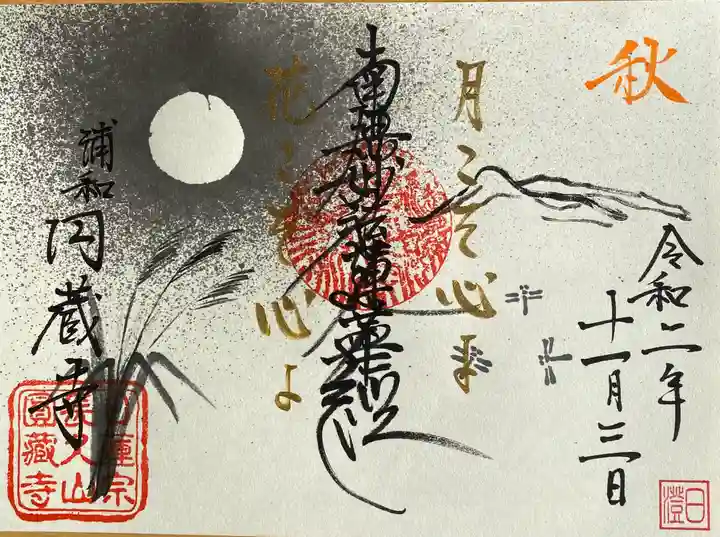 秋
令和二年
十一月三日
月こそ心よ
南無妙法蓮華経
花こそ心よ
浦和
円蔵寺
日蓮宗
長久山
圓藏寺
日澄